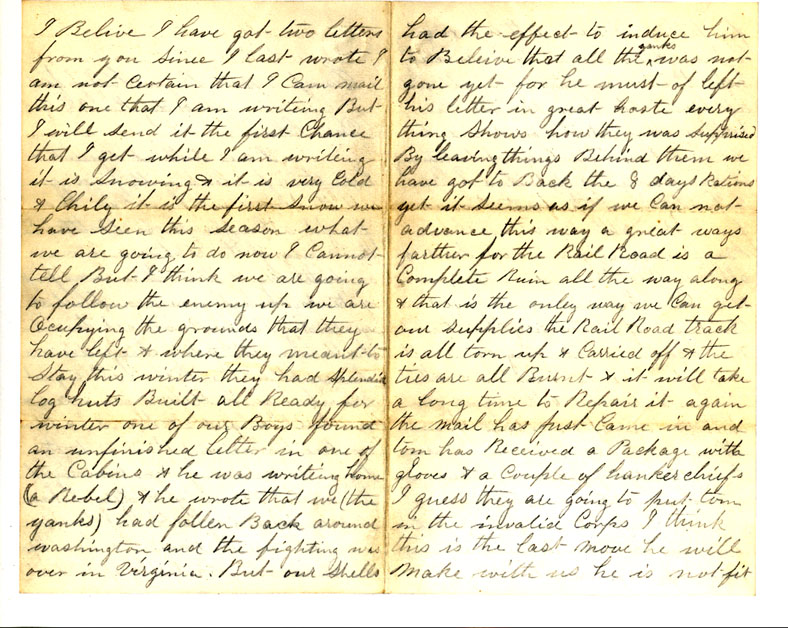 I Belive I have got two letters
from you since I last wrote I
am not Certain that I Can mail
this one that I am writing But
I will send it the first Chance
that I get while I am writing
it is Snowing & it is very Cold
& Chily it is the first Snow we
have Seen this Season what
we are going to do now I Cannot
tell But I think we are going
to follow the enemy up we are
Ocupying the grounds that they
have left & where they meant to
Stay this winter they had splendid
log huts Built all Ready for
winter one of our Boys found
an unfinished letter in one of
the Cabins & he was writing home
(a Rebel) & he wrote that we (the
yanks) had fallen Back around
washington and the fighting was
over in Virginia. But our Shells
had the effect to induce him
to Beleive that all the yanks was not
gone yet for he must of left
his letter in great haste every
thing Shows how they was Suprised
By leaving things Behind them we
have got to Back the 8 days Rations
yet it Seems as if we Can not
advance this way a great ways
farther for the Rail Road is a
Complete Ruin all the way along
& that is the onley way we Can get
our Supplies the Rail Road track
is all torn up & Carried off & the
ties are all Burnt & it will take
a long time to Repair it again
the mail has just Came in and
tom has Received a Package with
gloves & a Couple of hankerchiefs
I guess they are going to put tom
in the invalid Corps I think
this is the last move he will
make with us he is not fit